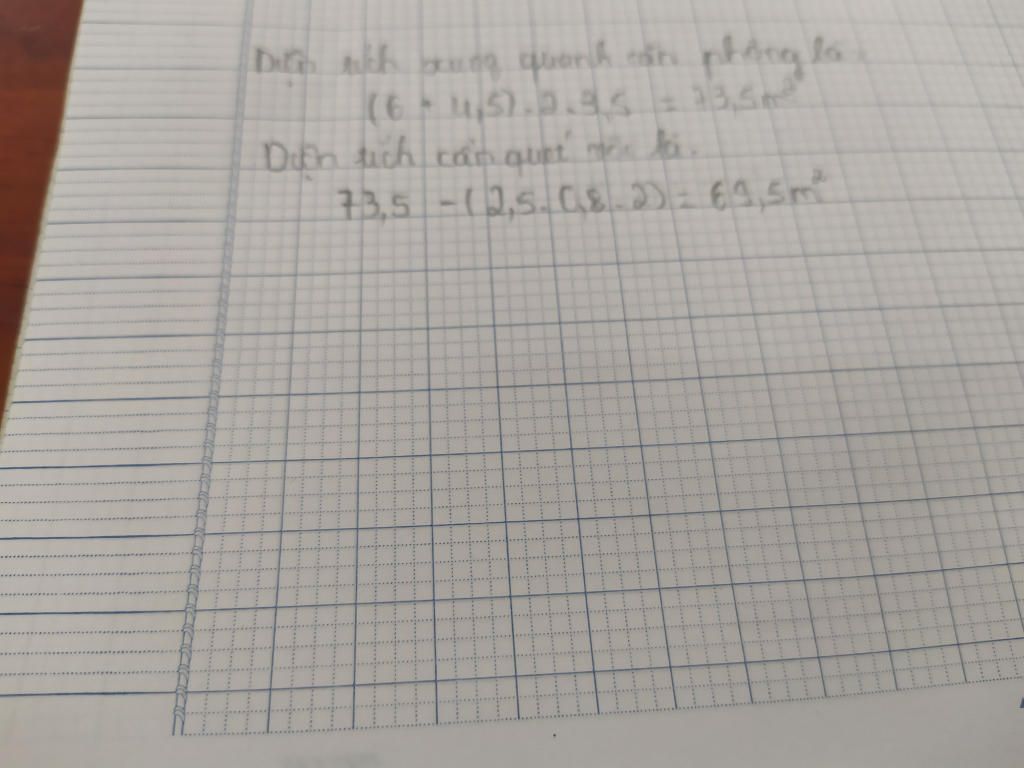 Diện tích xung quanh căn phòng là
(6 + 4,5) . 2 . 3,5 = 73,5m²
Diện tích cần quét là.
73,5 - (2,5 . 0,8 . 2) = 69,5m²